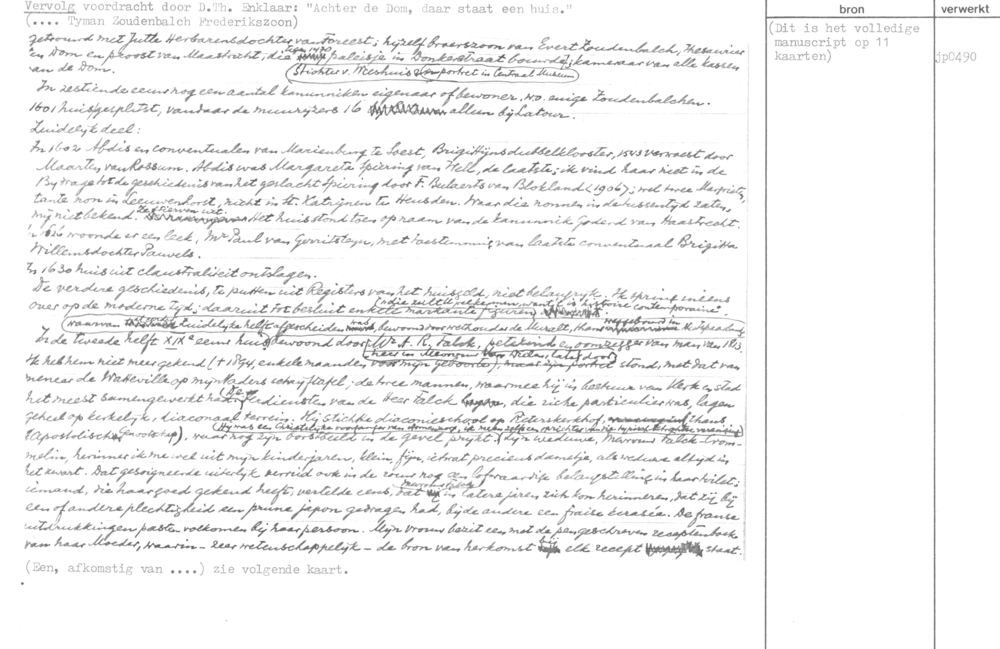 Vervolg voordracht door D.Th. Enklaar: "Achter de Dom, daar staat een huis."
(.... Tyman Zoudenbalch Frederikszoon)
bron
verwerkt
(Dit is het volledige
manuscript op 11
kaarten)
jp0490
getrouwd met Jutte Herbarensdochter van Foreest; hijzelf broerszoon van Evert Zoudenbalch, Thesaurier
in Dom en proost van Maastricht, die tegen 1470 paleisje in Donkerstraat bouwde; kameraar van alle kassen
van de Dom. (Stichter v. Weeshuis portret in Centraal Museum)
In zestiende eeuw nog een aantal kanunniken eigenaar of bewoner, w.o. enige Zoudenbalchen.
1601 huis gesplitst, vandaar de muurijzers 16 alleen bij Latour.
Zuidelijk deel:
In 1602 Abdis en conventualen van Marienburg te Soest, Brigittijns dubbelklooster, 1543 verwoest door
Maarten van Rossum. Abdis was Margareta Spiering van Well, de laatste; ik vind haar niet in de
Bijdrage tot de geschiedenis van het geslacht Spiering door F. Beelaerts van Blokland (1906); wel twee Margriets,
tante non in Leeuwenhorst, nicht in St. Katrijnen te Heusden. Waar die nonnen in de tussentijd zaten,
mij niet bekend. Het huis stond toen op naam van de kanunnik Goderd van Haastrecht.
1616 woonde er een leek, Mr Paul van Gerritsteyn, met toestemming van laatste conventuaal Brigitta
Willemsdochter Pauwels.
In 1630 huis uit claustraliteit ontslagen.
De verdere geschiedenis, te putten uit Registers van het huisgeld, niet belangrijk. Ik spring ineens
over op de moderne tijd, daaruit tot besluit enkele markante figuren (die zult U wel kennen, want is "histoire contemporaine".
waarvan zuidelijke helft afgescheiden, was bewoond door wethouder de Muralt, thans
In de tweede helft XIXe eeuw huis bewoond door Mr. A. R. Falck, petekind en oomzegger van man van 1813.
Ik heb hem niet meer gekend († 1894, enkele maanden voor mijn geboorte), maar zijn portret stond, met dat van
meneer de Watteville op mijn Vaders schrijftafel; de twee mannen, waarmee hij in bestuur van Kerk en stad
het meest samengewerkt had. De verdiensten van de Heer Falck, die rijke particulier was, lagen
geheel op kerkelijk, diaconaal terrein. Hij stichtte diaconieschool op Pieterskerkhof, thans
(Apostolisch Genootschap), waar nog zijn borstbeeld in de gevel prijkt. Zijn weduwe, Mevrouw Falck-Crom-
melin, herinner ik me wel uit mijn kinderjaren, klein, fijn, ietwat precieus dametje, als weduwe altijd in
het zwart. Dat gesoigneerde uiterlijk verried ook in de rouw nog een lofwaardige belangstelling in haar toilet;
iemand, die haar goed gekend heeft, vertelde eens, dat Mevrouw Falck in latere jaren zich kon herinneren, dat zij bij
een of andere plechtigheid een prune japon gedragen had, bij de andere een fraise écrasée. De franse
uitdrukkingen pasten volkomen bij haar persoon. Mijn vrouw bezit een met de pen geschreven receptenboek
van haar Moeder, waarin - zeer wetenschappelijk - de bron van herkomst bij elk recept staat.
(Een, afkomstig van ....) zie volgende kaart.